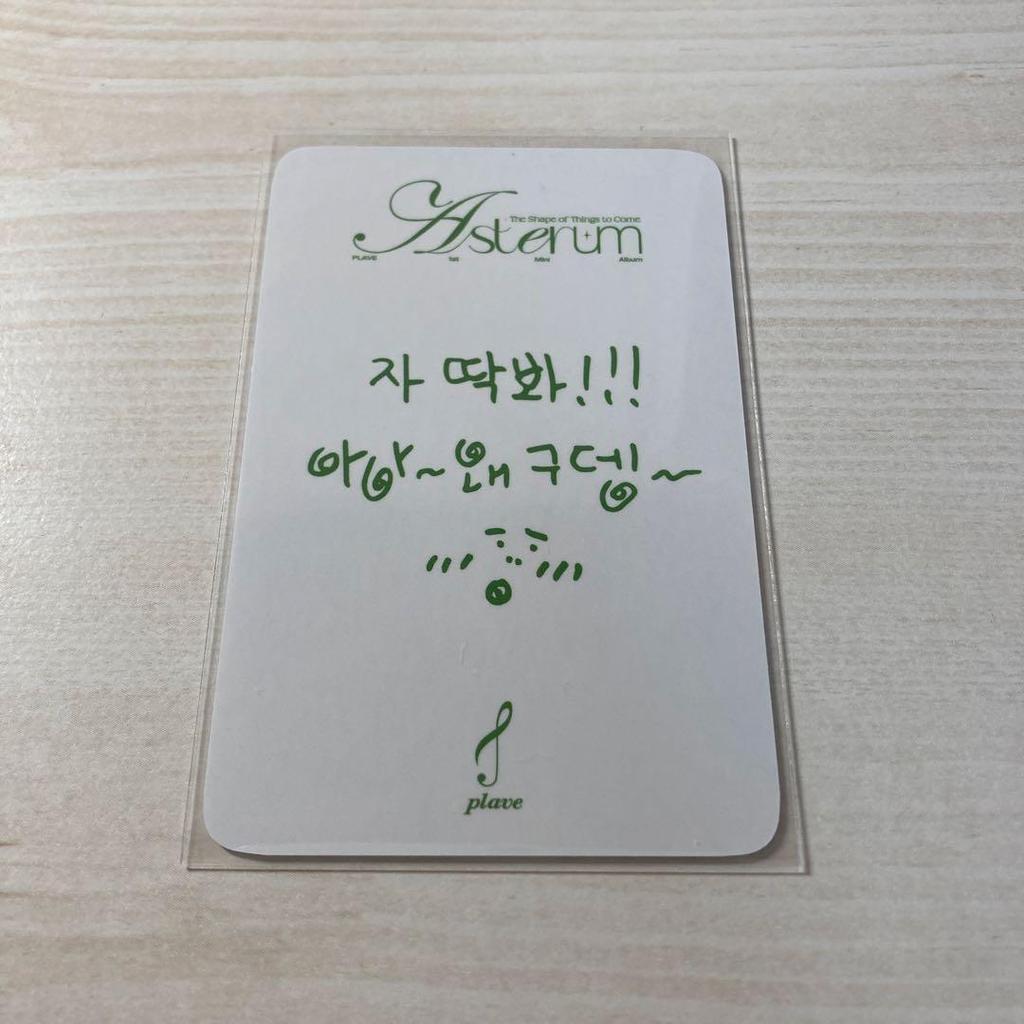 The Shape of Things to Come
Asterum
PLAVE 1st Mini Album
자 딱봐!!!
아아~왜 구뎅~
plave